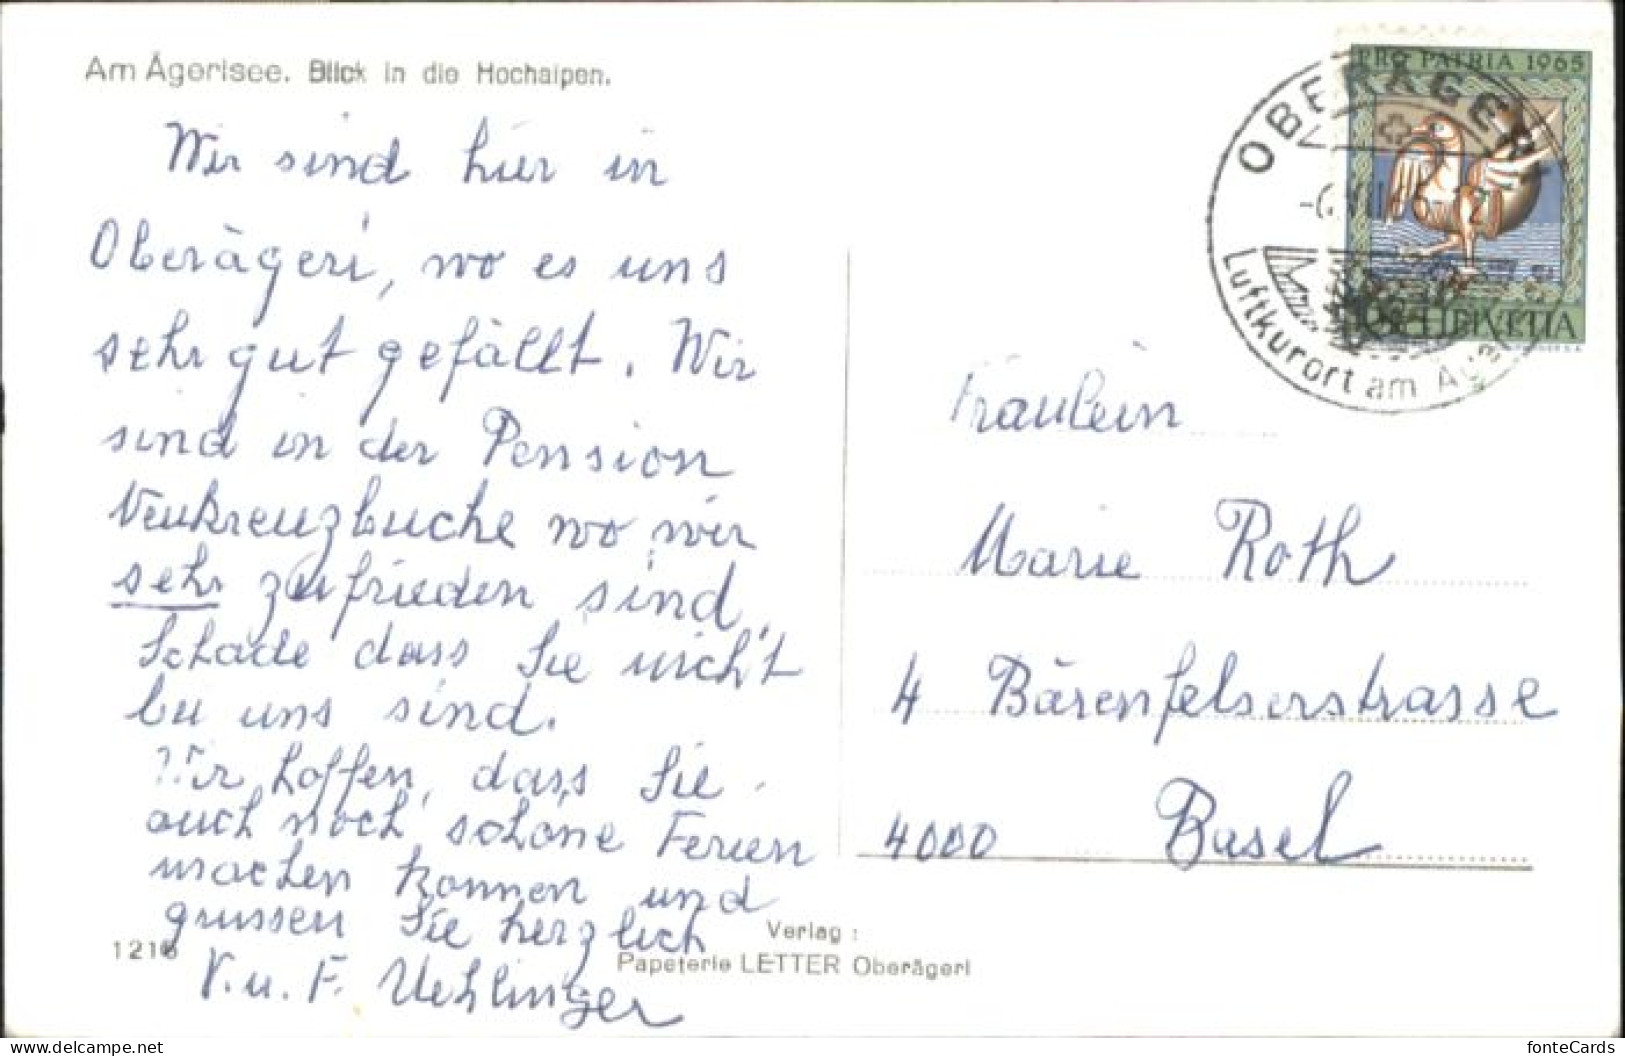 Am Ägerisee. Blick in die Hochalpen.
Wir sind hier in
Oberägeri, wo es uns
sehr gut gefällt. Wir
sind in der Pension
Neukreuzbuche wo wir
sehr zufrieden sind.
Schade dass Sie nicht
bei uns sind.
Wir hoffen, dass Sie
auch noch schöne Ferien
machen können und
grüssen Sie herzlich
V. u. F. Uehlinger
1216
Verlag:
Papeterie LETTER Oberägeri
PRO PATRIA 1965
HELVETIA
OBERÄGERI
Luftkurort am
Fräulein
Marie Roth
4 Bärenfelserstrasse
4000 Basel
https://www.delcampe.net
fonteCards